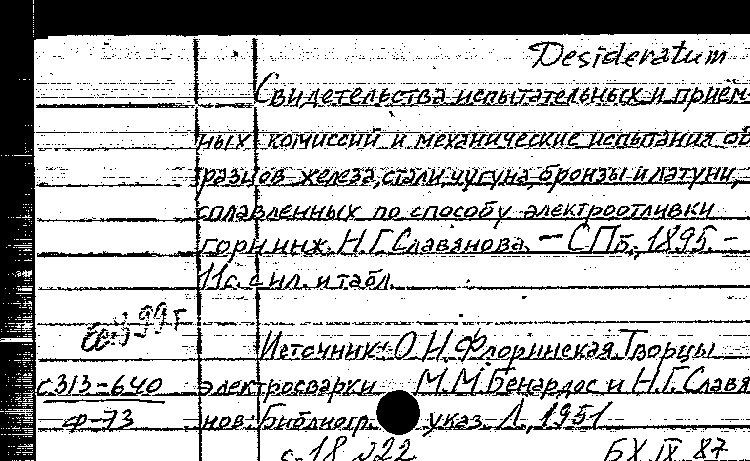 Desideratum
Свидетельства испытательных и приём-
ных комиссий и механические испытания об
разцов железа, стали, чугуна, бронзы и латуни,
сплавленных по способу электроотливки
горн. инж. Н.Г. Славянова. — СПб., 1895. –
11с. с ил. и табл.
99 г
Источник: О.Н. Флоринская. Творцы
с313-640 электросварки М.М. Бенардос и Н.Г. Славя
Ф-73 нов: Библиогр. указ. Л., 1951
с. 18 №22 БХ IX 87